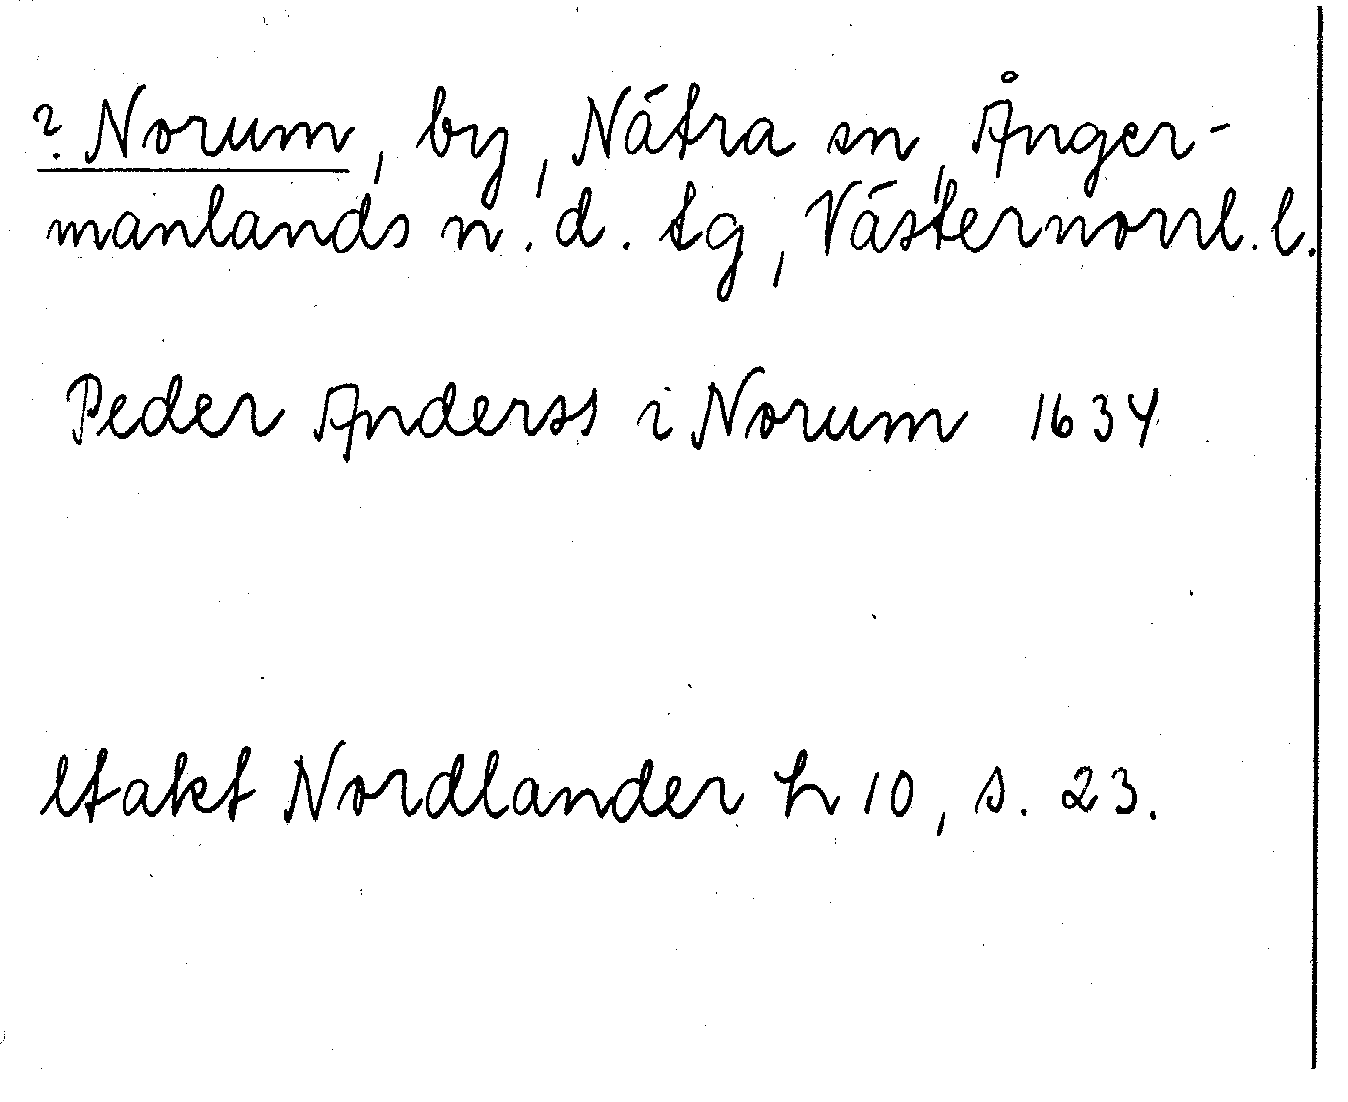 ? Norum, by, Nätra sn, Ånger-
manlands n. d. tg, Västernorrl. l.
Peder Anderss i Norum 1634
Utakt Nordlander h 10, s. 23.